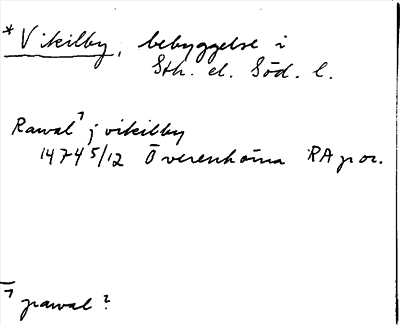 *Vikilby, bebyggelse i
Sth. el. Söd. l.
Rawal ⁊ j vikilby
1474 5/12 Överenhörna RA p or.
⁊ pawal?